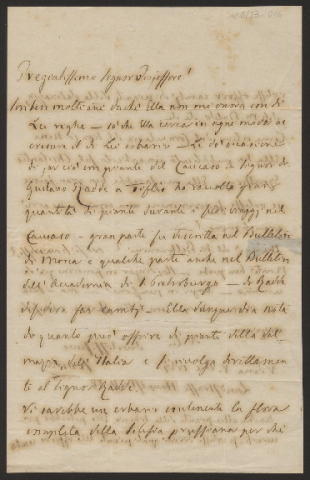 Pregiatissimo Signor Professore!
Son ben molti anni che Ella non mi onora con di
Lei righe — so che Ella cerca in ogni modo ac
crescere il di Lei erbario — Le do occasione
di far ciò con piante del Caucaso. Il Signor de
Gustavo Radde a Tiflis ha raccolto gran
quantità di piante durante i suoi viaggi nel
Caucaso — gran parte fu descritta nel Bulletin
di Mosca e qualche parte anche nel Bulletin
dell'Accademia di Pietroburgo — de Radde
desidera far cambj — Ella dunque dia nota
di quanto può offrire di piante della Dal
mazia, dell'Italia e si rivolga direttamen
te al Signor Radde.
Vi sarebbe un erbario contenente la flora
completa della Silesia prussiana per chi